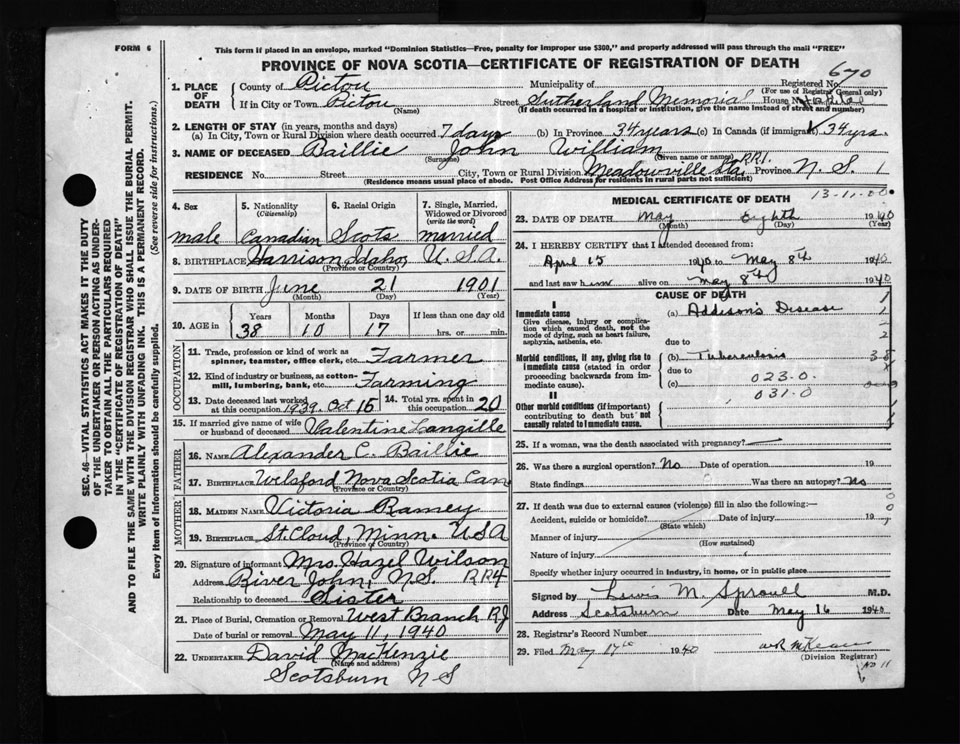 FORM 6
This form if placed in an envelope, marked "Dominion Statistics—Free, penalty for improper use $300," and properly addressed will pass through the mail "FREE"
PROVINCE OF NOVA SCOTIA—CERTIFICATE OF REGISTRATION OF DEATH
670
1. PLACE OF DEATH
County of Pictou
Municipality of
Registered No.
(For use of Registrar General only)
If in City or Town Pictou
(Name)
Street Sutherland Memorial House No. Hospital
(If death occurred in a hospital or institution, give the name instead of street and number)
2. LENGTH OF STAY (in years, months and days)
(a) In City, Town or Rural Division where death occurred 7 days (b) In Province 34 years (c) In Canada (if immigrant) 34 yrs.
3. NAME OF DECEASED Baillie John William
(Surname) (Given name or names)
RESIDENCE No. Street City, Town or Rural Division Meadowville Sta. RR1. Province N.S. 1
(Residence means usual place of abode. Post Office Address for residents in rural parts not sufficient)
4. Sex
male
5. Nationality
(Citizenship)
Canadian
6. Racial Origin
Scots
7. Single, Married, Widowed or Divorced
(write the word)
married
8. BIRTHPLACE Harrison Idaho, U.S.A.
(Province or Country)
9. DATE OF BIRTH June 21 1901
(Month) (Day) (Year)
10. AGE in
Years Months Days If less than one day old
38 10 17 hrs. or min.
OCCUPATION
11. Trade, profession or kind of work as spinner, teamster, office clerk, etc. Farmer
12. Kind of industry or business, as cotton-mill, lumbering, bank, etc. Farming
13. Date deceased last worked at this occupation 1939. Oct 15
14. Total yrs. spent in this occupation 20
15. If married give name of wife or husband of deceased Valentine Langille
FATHER
16. NAME Alexander C. Baillie
17. BIRTHPLACE Welsford Nova Scotia Can
(Province or Country)
MOTHER
18. MAIDEN NAME Victoria Ramey
19. BIRTHPLACE St. Cloud, Minn. USA
(Province or Country)
20. Signature of informant Mrs. Hazel Wilson
Address River John, N.S. RR4
Relationship to deceased Sister
21. Place of Burial, Cremation or Removal West Branch RJ
Date of burial or removal May 11, 1940
22. UNDERTAKER David MacKenzie
(Name and address)
Scotsburn N S
MEDICAL CERTIFICATE OF DEATH
23. DATE OF DEATH May Eighth 1940
(Month) (Day) (Year)
24. I HEREBY CERTIFY that I attended deceased from:
April 15 1940 to May 8th 1940
and last saw him alive on May 8th 1940
CAUSE OF DEATH
I
Immediate cause
Give disease, injury or complication which caused death, not the mode of dying, such as heart failure, asphyxia, asthenia, etc.
(a) Addison's Disease
due to
Morbid conditions, if any, giving rise to immediate cause (stated in order proceeding backwards from immediate cause).
(b) Tuberculosis
due to
(c) 023-0.
II
031.0
Other morbid conditions (if important) contributing to death but not causally related to immediate cause.
25. If a woman, was the death associated with pregnancy?
26. Was there a surgical operation? No Date of operation 19
State findings Was there an autopsy? No
27. If death was due to external causes (violence) fill in also the following:—
Accident, suicide or homicide? Date of injury 19
(State which)
Manner of injury
(How sustained)
Nature of injury
Specify whether injury occurred in industry, in home, or in public place
Signed by Lewis M. Sproull M.D.
Address Scotsburn Date May 16 1940
28. Registrar's Record Number
29. Filed May 17th 1940
(Division Registrar)
SEC. 46—VITAL STATISTICS ACT MAKES IT THE DUTY OF THE UNDERTAKER OR PERSON ACTING AS UNDERTAKER TO OBTAIN ALL THE PARTICULARS REQUIRED IN THE "CERTIFICATE OF REGISTRATION OF DEATH" AND TO FILE THE SAME WITH THE DIVISION REGISTRAR WHO SHALL ISSUE THE BURIAL PERMIT.
WRITE PLAINLY WITH UNFADING INK. THIS IS A PERMANENT RECORD.
Every item of information should be carefully supplied.
(See reverse side for instructions.)